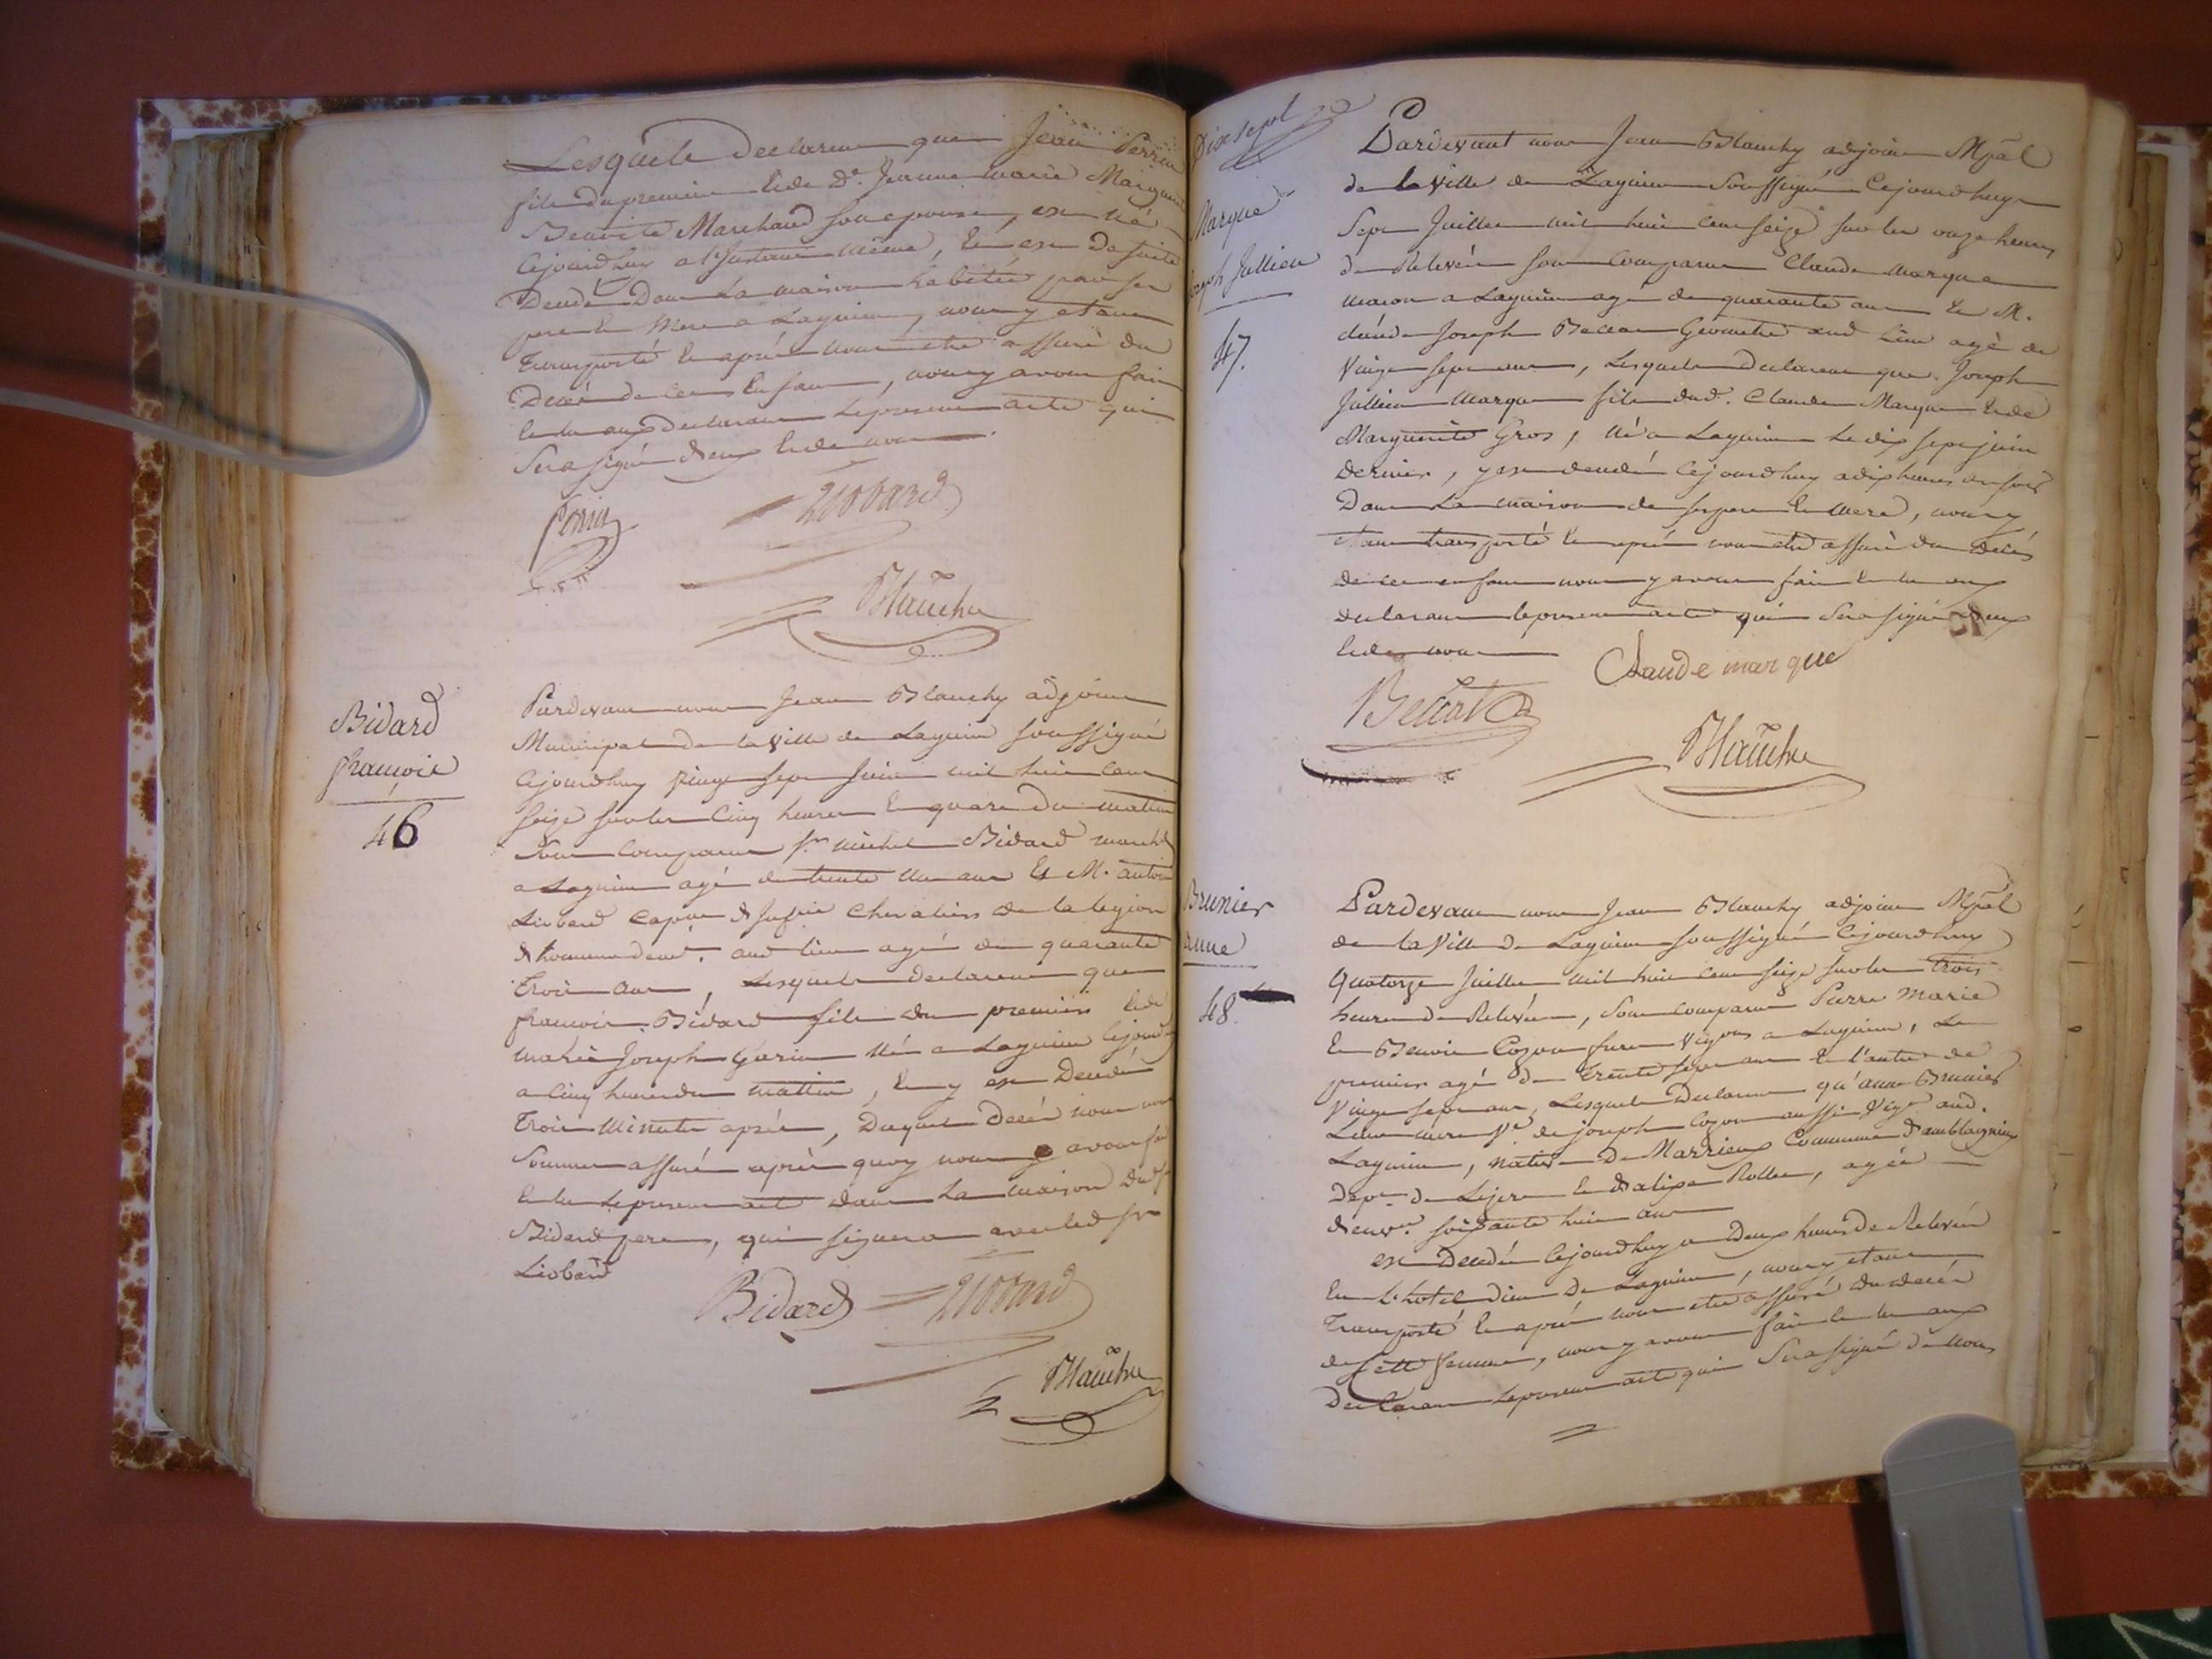 Lesquels declarent que Jean Perrin
fils du premier & de De. Jeanne marie Marguerite
Benoite Marchand son epouse, est né
Cejourdhuy a l'Instant même, & est de suite
Decedé Dans La maison habitée par ses
pere & Mere a Lagnieu, nous y etant
transporté & après nous etre assuré du
Decés de cet Enfant, nous y avons fait
& lu aux declarants le present acte qui
Sera signé d'eux & de nous
Perrin
Liobard
Blanchy
Bidard
françois
46
Pardevant nous Jean Blanchy adjoint
Municipal de la Ville de Lagnieu soussigné
Cejourdhuy vingt sept Juin mil huit cent
seize sur les Cinq heures & quart du mattin
sont comparus sr. michel Bidard marchd
a Lagnieu agé de trente un ans & M. antoine
Liobard Capne d'Infrie Chevalier de la legion
d'honneur demt. aud lieu agé de quarante
trois ans, Lesquels declarent que
françois Bidard fils du premier & de
marie Joseph Garin né a Lagnieu Cejourdhuy
a Cinq heures du mattin, & y est Decedé
trois Minutes après, Duquel Decés nous nous
Sommes assuré après quoy nous y avons fait
& lu le present acte dans La maison du sr
Bidard pere, qui signera avec led sr
Liobard
Bidard
Liobard
Blanchy
Dix sept
Marque
Joseph Jullien
47.
Pardevant nous Jean Blanchy adjoint Mpal
de la Ville de Lagnieu Soussigné Cejourdhuy
Sept Juillet mil huit cent seize sur les onze heures
de Relevée sont Comparus Claude marque
macon a Lagnieu agé de quarante ans & M.
claude Joseph Beccat Geometre aud lieu agé de
Vingt sept ans, Lesquels declarent que Joseph
Jullien marque fils dud. Claude Marque & de
Marguerite Gros, né a Lagnieu le dix sept juin
dernier, y est decedé Cejourdhuy a dix heures du soir
Dans La maison de ses pere & mere, nous y
etant transporté & après nous etre assuré du Decés
de cet enfant nous y avons fait & lu aux
declarants le present acte qui Sera signé d'eux
& de nous
Claude marque
Beccat
Blanchy
Brunier
anne
48.
Pardevant nous Jean Blanchy adjoint Mpal
de la Ville de Lagnieu soussigné Cejourdhuy
Quatorze Juillet mil huit cent seize sur les trois
heures de Relevée, sont comparus Pierre Marie
& Benoit Cozon freres Vignons a Lagnieu, Le
premier agé de trente sept ans & l'autre de
Vingt sept ans, Lesquels Declarent qu'anne Brunier
Leur mere Ve. de joseph Cozon aussi Vign aud.
Lagnieu, native De Marrieux Commune d'amblagnieux
Dept. de Lizere & d'alipe Rolle, agée
d'envn. soixante huit ans
est Decedée Cejourdhuy a Deux heures de Relevée
En L'hotel Dieu de Lagnieu, nous y etant
transporté & après nous etre assuré du decés
de cette femme, nous y avons fait & lu aux
Declarants le present acte qui Sera signé de nous